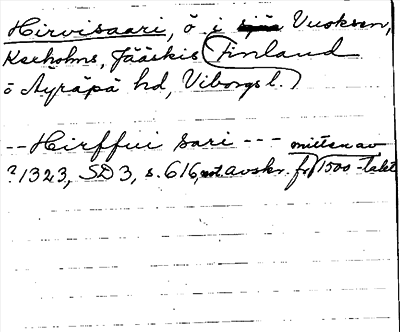 Hirvisaari, ö i sjön Vuoksen,
Kexholms, Jääskis Finland
o Äyräpä hd, Viborgs l.
-- Hirffui sari --- mitten av
?1323, SD 3, s. 616, avskr. fr 1500-talet